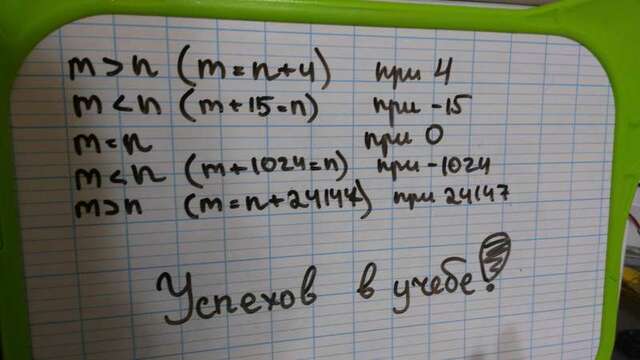 m > n (m = n + 4) при 4
m < n (m + 15 = n) при -15
m = n при 0
m < n (m + 1024 = n) при -1024
m > n (m = n + 24147) при 24147
Успехов в учебе!